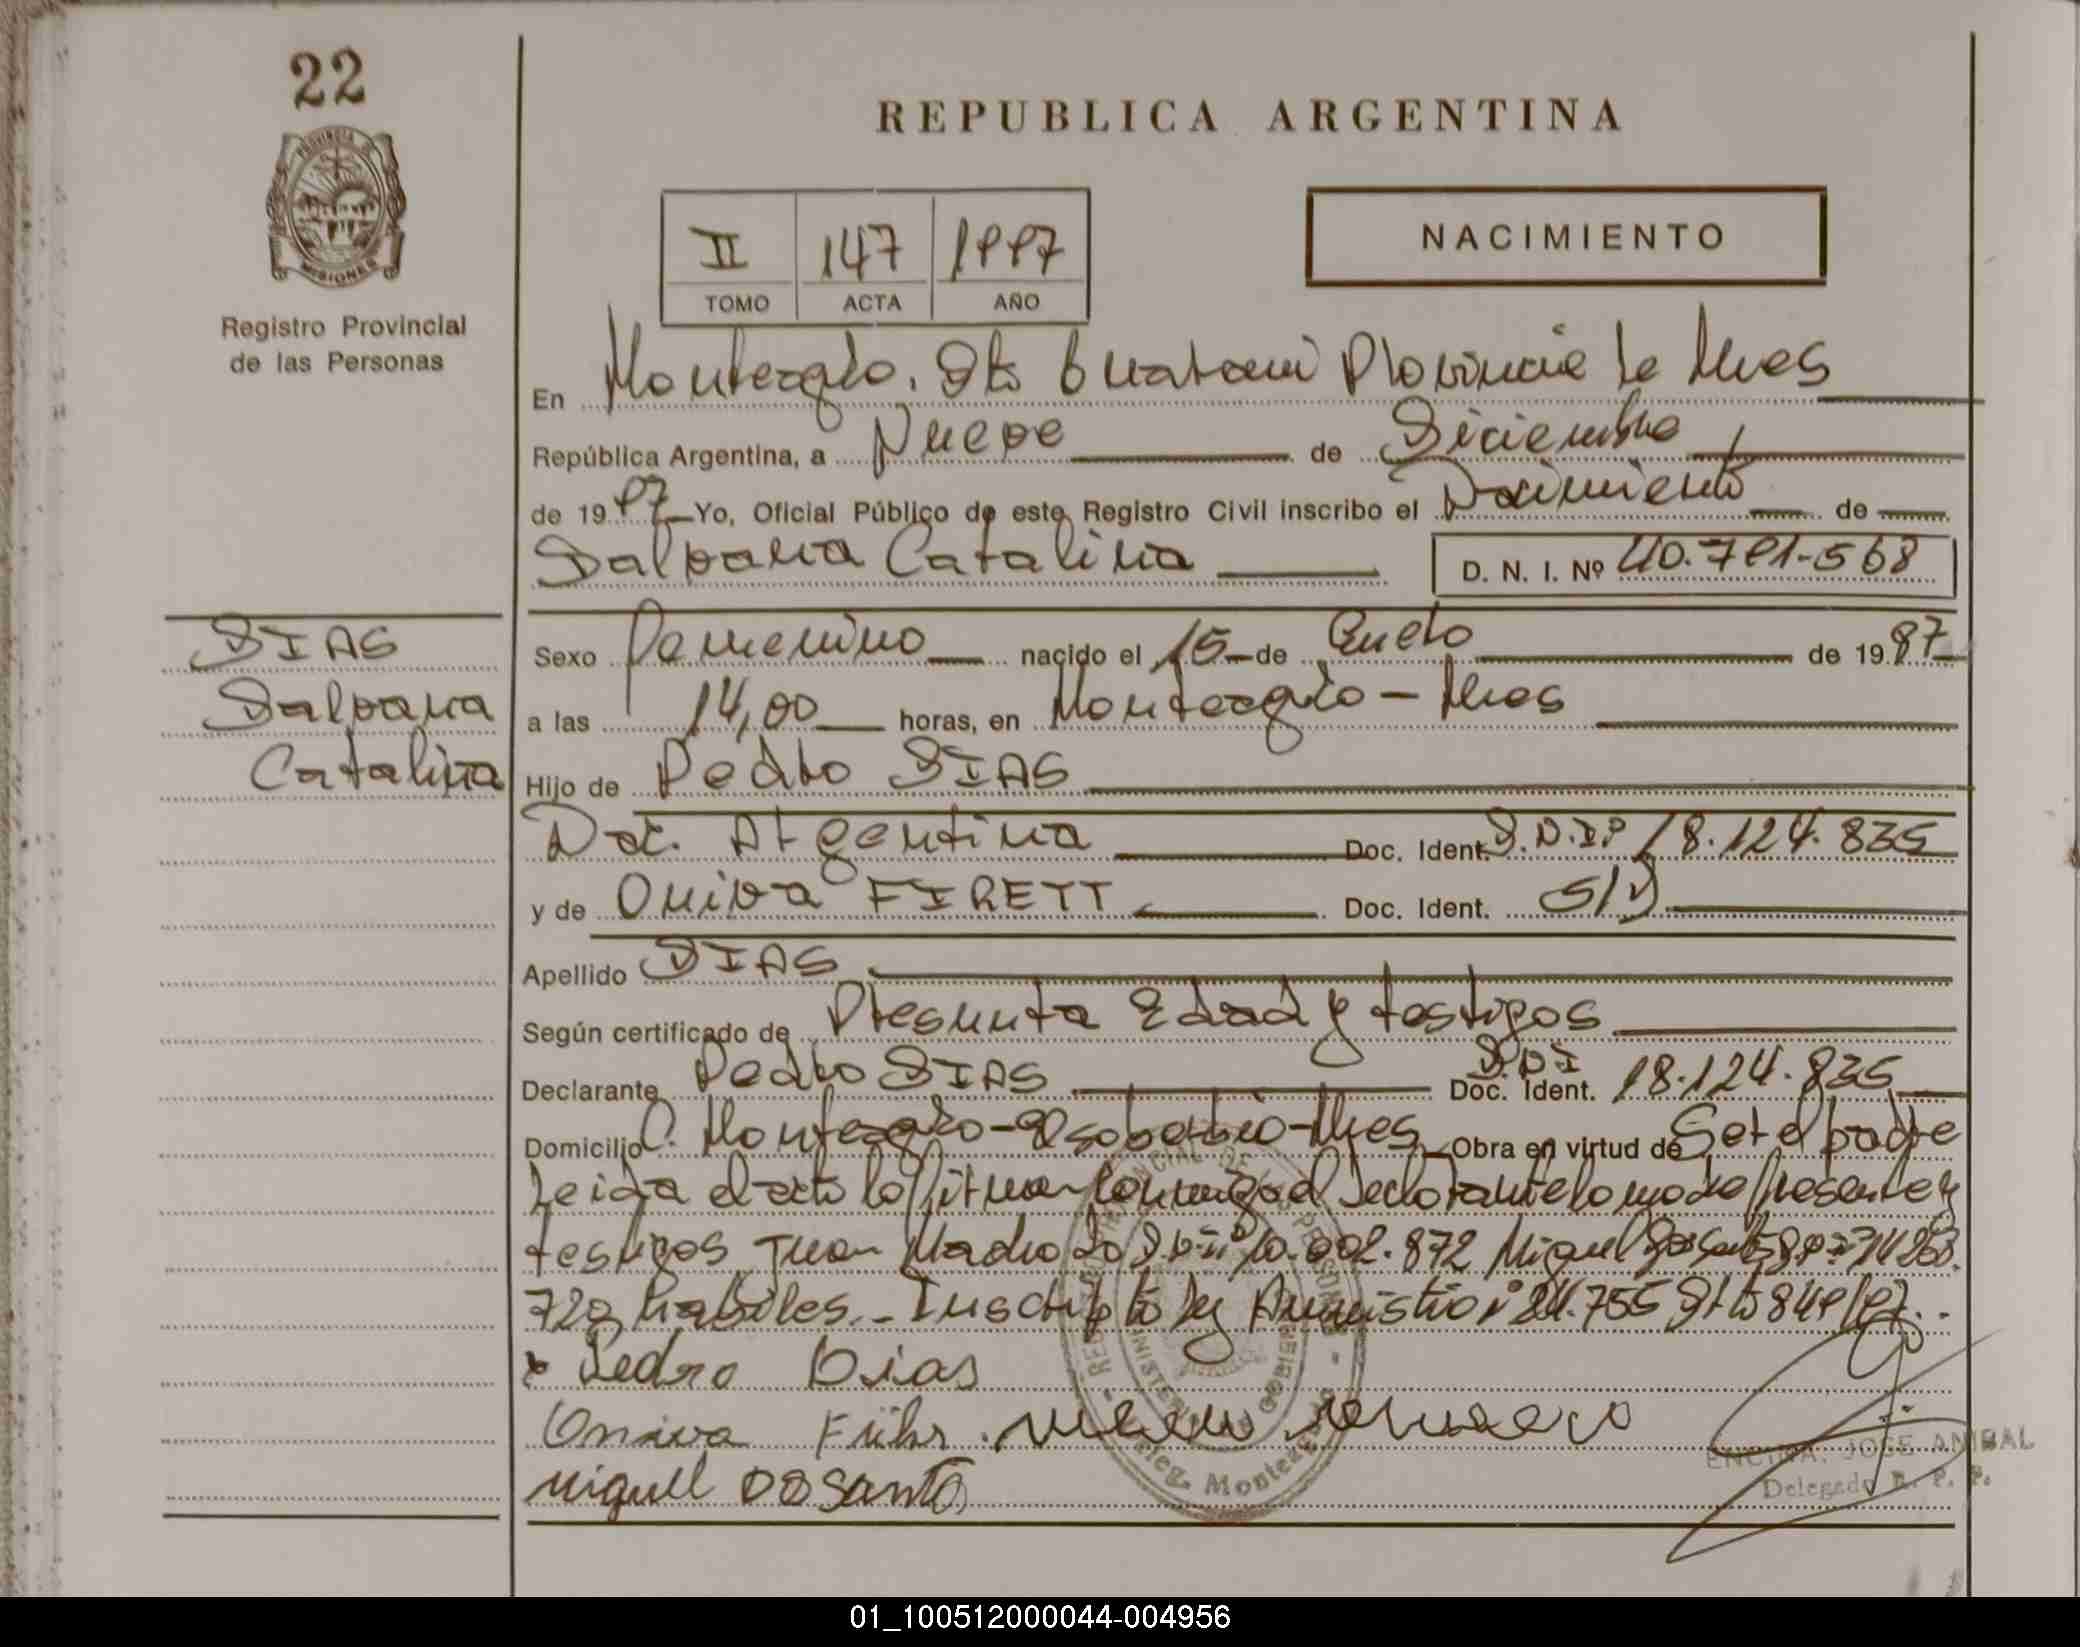 22
PROVINCIA DE
MISIONES
Registro Provincial
de las Personas
REPUBLICA ARGENTINA
II 147 1997
TOMO ACTA AÑO
NACIMIENTO
En Monteagdo. Dto Guarani Provincia de Mnes
República Argentina, a Nueve de Diciembre
de 1997 Yo, Oficial Público de este Registro Civil inscribo el Nacimiento de
Dalvana Catalina D. N. I. Nº
DIAS
Dalvana
Catalina
Sexo Femenino nacido el 15 de Enero de 1997
a las 14,00 horas, en Monteagdo - Mnes
Hijo de Pedro DIAS
Nac. Argentina Doc. Ident. D.N.Iº 18.124.835
y de Oniva FIRETT Doc. Ident. S/D
Apellido DIAS
Según certificado de Presunta Edad y testigos
Declarante Pedro DIAS Doc. Ident. D.N.I 18.124.835
Domicilio C. Monteagdo - El Soberbio - Mnes Obra en virtud de Ser el padre
Leida el acta la firman conmigo el declarante la madre presente y
testigos Juan 10.002.872 Miguel
habiles. - Inscripto ley Amnistia nº 24.755 Dto
Pedro Dias
Oniva
Miguel DOSanto
Deleg. Monteagudo
ENCINA, JOSE ANIBAL
Delegado R. P. P.
01_100512000044-004956